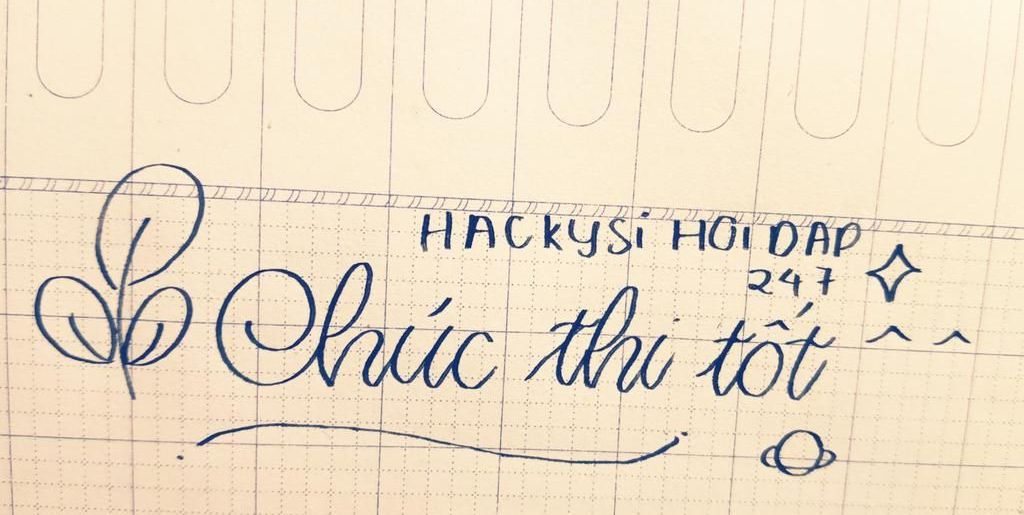 HACKYSi HOiDAP
247
Chúc thi tốt ^ ^